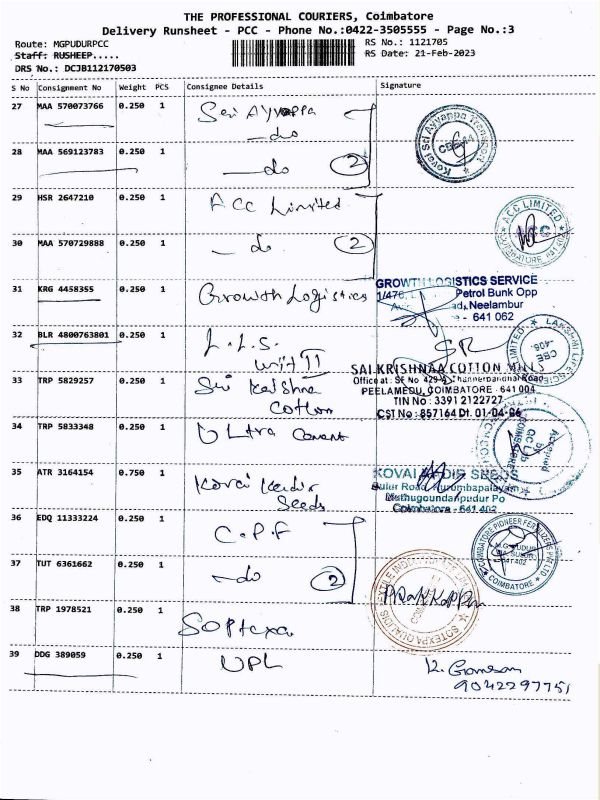 THE PROFESSIONAL COURIERS, Coimbatore
Delivery Runsheet - PCC - Phone No.:0422-3505555 - Page No.:3
Route: MGPUDURPCC
RS No.: 1121705
Staff: RUSHEEP.....
RS Date: 21-Feb-2023
DRS No.: DCJB112170503
S No Consignment No Weight PCS Consignee Details Signature
27 MAA 570073766 0.250 1 Sri Ayyappa
—do
28 MAA 569123783 0.250 1 —do 2
Kovai Sri Ayyappa Transport
29 HSR 2647210 0.250 1 ACC Limited
ACC LIMITED
30 MAA 570729888 0.250 1 —do 2
31 KRG 4458355 0.250 1 Growth Logistics
GROWTH LOGISTICS SERVICE
Petrol Bunk Opp
Neelambur
641 062
32 BLR 4800763801 0.250 1 L.L.S.
Unit II
33 TRP 5829257 0.250 1 Sri Krishna
Cotton
SAI KRISHNAA COTTON MILLS
Office at : SF No 429/
PEELAMEDU, COIMBATORE - 641 004
TIN No : 33912122727
CST No : 857164 Dt. 01-04-96
34 TRP 5833348 0.250 1
35 ATR 3164154 0.750 1 Kovai Kadir
Seeds
KOVAI KADIR SEEDS
Sulur Road, Kurumbapalayam
Muthugoundanpudur Po
Coimbatore - 641 402
36 EDQ 11333224 0.250 1 C.P.F
COIMBATORE PIONEER FERTILIZERS
37 TUT 6361662 0.250 1 —do 2
38 TRP 1978521 0.250 1
39 DDG 389059 0.250 1 UPL
K. Ganesan
9042297751